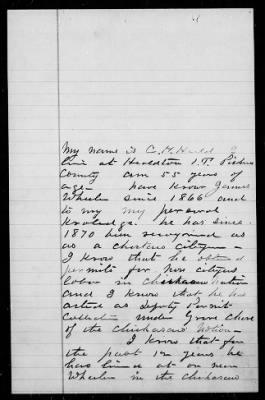 My name is C. H. Heald I
live at Healdton I.T. Pickens
County am 55 years of
age - have know James
Wheeler since 1866 and
to my my personal
knoledge he has since
1870 been recognized as
as a choctaw citizen -
I know that he obtained
permits for non citizen
labor in Chickasaw Nation
and I know that he has
acted as deputy Permit
Collector under Grove Chase
of the Chickasaw Nation -
I know that for
the past 12 years he
has lived at or near
Wheeler in the Chickasaw